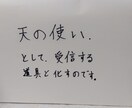 天の使い、
として、受信する
道具と化すのです。